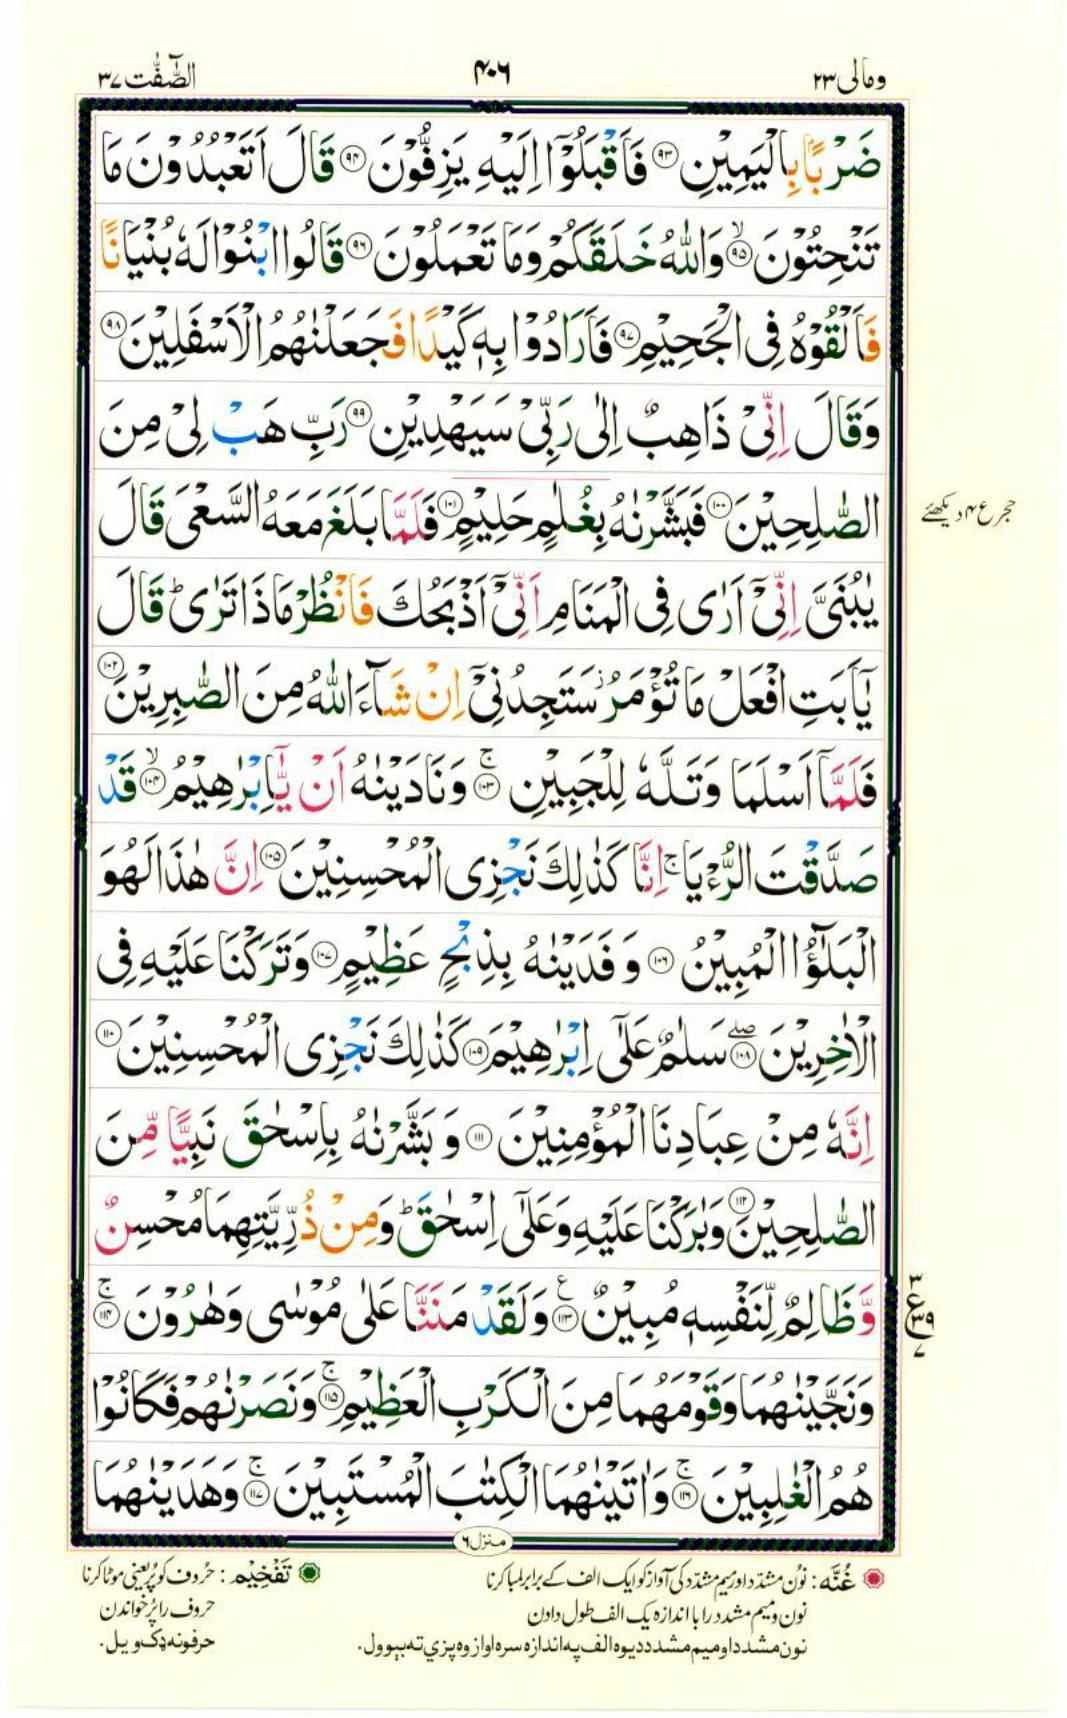 ومالی ۲۳ ۴۰۶ الصّٰٓفّٰت ۳۷
ضَرْبًۢا بِالْيَمِيْنِ ۹۳ فَاَقْبَلُوْۤا اِلَيْهِ يَزِفُّوْنَ ۹۴ قَالَ اَتَعْبُدُوْنَ مَا
تَنْحِتُوْنَ ۙ۹۵ وَاللّٰهُ خَلَقَكُمْ وَمَا تَعْمَلُوْنَ ۹۶ قَالُوا ابْنُوْا لَهٗ بُنْيَانًا
فَاَلْقُوْهُ فِى الْجَحِيْمِ ۹۷ فَاَرَادُوْا بِهٖ كَيْدًا فَجَعَلْنٰهُمُ الْاَسْفَلِيْنَ ۹۸
وَقَالَ اِنِّىْ ذَاهِبٌ اِلٰى رَبِّىْ سَيَهْدِيْنِ ۹۹ رَبِّ هَبْ لِىْ مِنَ
الصّٰلِحِيْنَ ۱۰۰ فَبَشَّرْنٰهُ بِغُلٰمٍ حَلِيْمٍ ۱۰۱ فَلَمَّا بَلَغَ مَعَهُ السَّعْىَ قَالَ
حجر ع ۴ دیکھئے
يٰبُنَىَّ اِنِّىْۤ اَرٰى فِى الْمَنَامِ اَنِّىْۤ اَذْبَحُكَ فَانْظُرْ مَاذَا تَرٰى ؕ قَالَ
يٰۤاَبَتِ افْعَلْ مَا تُؤْمَرُ ؗ سَتَجِدُنِىْۤ اِنْ شَآءَ اللّٰهُ مِنَ الصّٰبِرِيْنَ ۱۰۲
فَلَمَّاۤ اَسْلَمَا وَتَلَّهٗ لِلْجَبِيْنِ ۚ۱۰۳ وَنَادَيْنٰهُ اَنْ يّٰۤاِبْرٰهِيْمُ ۙ۱۰۴ قَدْ
صَدَّقْتَ الرُّءْيَا ۚ اِنَّا كَذٰلِكَ نَجْزِى الْمُحْسِنِيْنَ ۱۰۵ اِنَّ هٰذَا لَهُوَ
الْبَلٰٓؤُا الْمُبِيْنُ ۱۰۶ وَفَدَيْنٰهُ بِذِبْحٍ عَظِيْمٍ ۱۰۷ وَتَرَكْنَا عَلَيْهِ فِى
الْاٰخِرِيْنَ ۖ۱۰۸ سَلٰمٌ عَلٰٓى اِبْرٰهِيْمَ ۱۰۹ كَذٰلِكَ نَجْزِى الْمُحْسِنِيْنَ ۱۱۰
اِنَّهٗ مِنْ عِبَادِنَا الْمُؤْمِنِيْنَ ۱۱۱ وَبَشَّرْنٰهُ بِاِسْحٰقَ نَبِيًّا مِّنَ
الصّٰلِحِيْنَ ۱۱۲ وَبٰرَكْنَا عَلَيْهِ وَعَلٰٓى اِسْحٰقَ ؕ وَمِنْ ذُرِّيَّتِهِمَا مُحْسِنٌ
وَّظَالِمٌ لِّنَفْسِهٖ مُبِيْنٌ ۱۱۳ ع وَلَقَدْ مَنَنَّا عَلٰى مُوْسٰى وَهٰرُوْنَ ۚ۱۱۴
۳ ع ۳۹ ۷
وَنَجَّيْنٰهُمَا وَقَوْمَهُمَا مِنَ الْكَرْبِ الْعَظِيْمِ ۚ۱۱۵ وَنَصَرْنٰهُمْ فَكَانُوْا
هُمُ الْغٰلِبِيْنَ ۚ۱۱۶ وَاٰتَيْنٰهُمَا الْكِتٰبَ الْمُسْتَبِيْنَ ۚ۱۱۷ وَهَدَيْنٰهُمَا
منزل ۶
غُنَّه : نوُن مشدّد اور میم مشدّد کی آواز کو ایک الف کے برابر لمبا کرنا
نون و میم مشدد را با اندازہ یک الف طول دادن
نون مشدد او میم مشدد دیوه الف په اندازه سره اواز وه پزي ته بېوول.
تَفْخِيْم : حرُوف کو پُر یعنی موٹا کرنا
حروف را پُر خواندن
حرفونه ډک ویل.